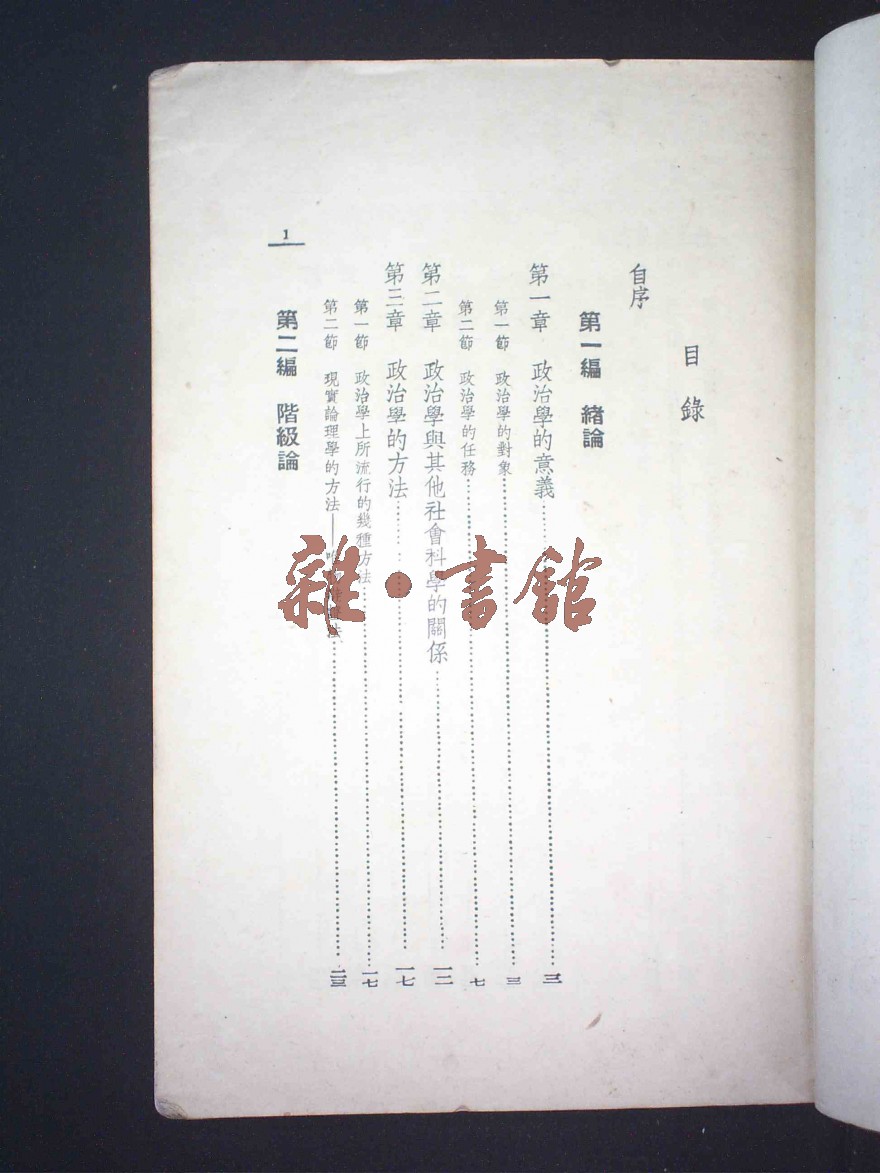 目錄
自序
第一編 緒論
第一章 政治學的意義……三
第一節 政治學的對象……三
第二節 政治學的任務……七
第二章 政治學與其他社會科學的關係……一二
第三章 政治學的方法……一七
第一節 政治學上所流行的幾種方法……一七
第二節 現實論理學的方法——法……二三
第二編 階級論
1
雜·書館